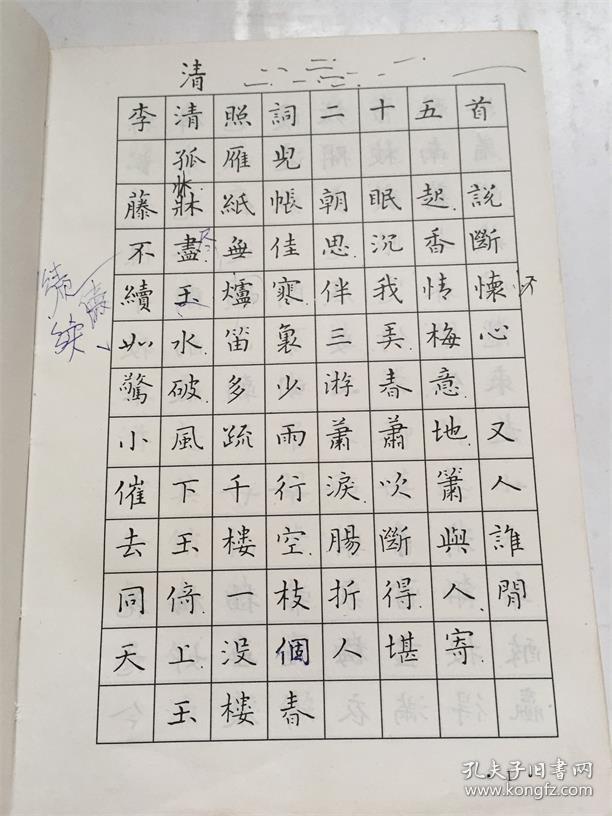 清
李清照詞二十五首
孤雁兒
床
藤牀紙帳朝眠起.說
不盡無佳思.沉香斷
續玉爐寒.伴我情懷
如水.笛裏三弄.梅心
驚破.多少游春意.
小風疏雨蕭蕭地.又
催下千行淚.吹簫人
去玉樓空.腸斷與誰
同倚.一枝折得.人閒
天上.没個人堪寄.
玉樓春
·1·
孔夫子旧书网
www.kongfz.com